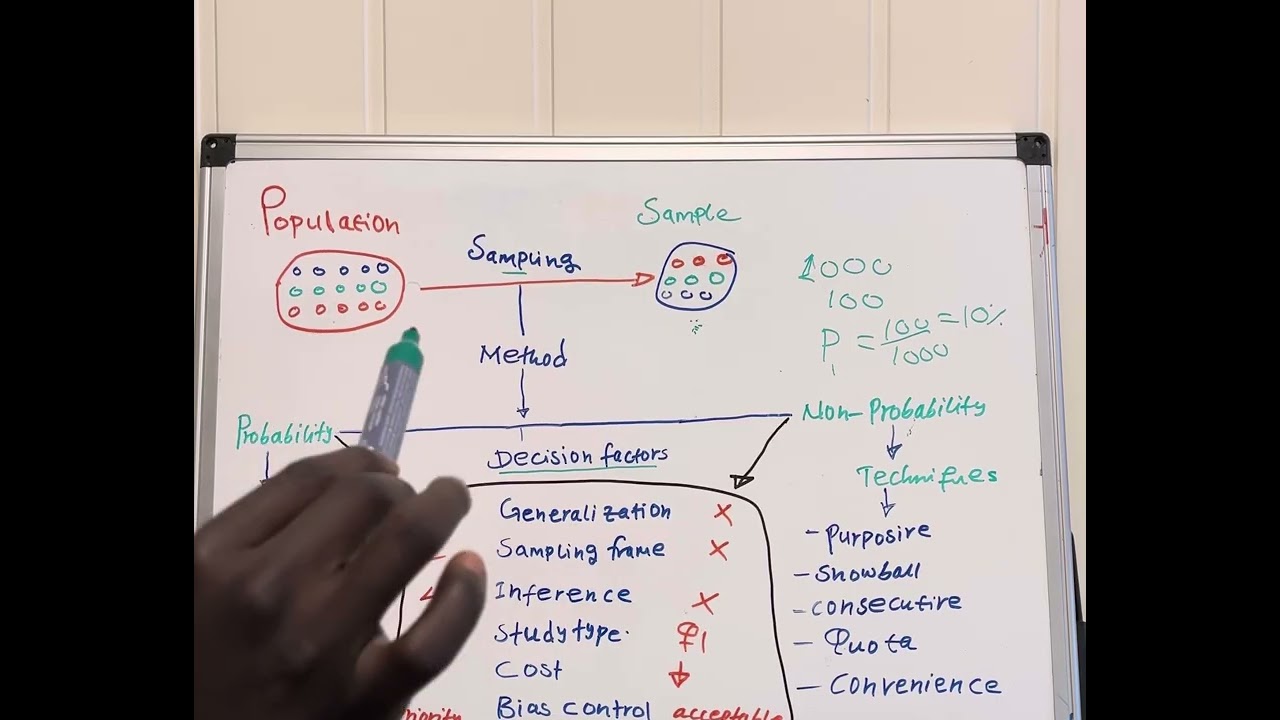 Population
Sample
Sampling
1000
100
P = 100/1000 = 10%
Method
Probability
Non-Probability
Decision factors
Techniques
Generalization X
Sampling frame X
Inference X
Study type.
Cost ↓
Bias control acceptable
- Purposire
- Snowball
- consecutire
- Quota
- Convenience